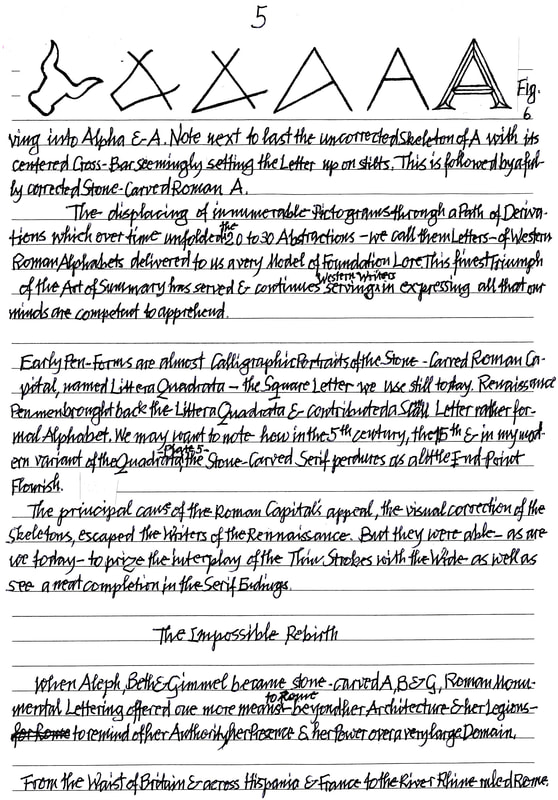 5
Fig.
6
ving into Alpha & A. Note next to last the uncorrected skeleton of A with its
centered Cross-Bar seemingly setting the Letter up on stilts. This is followed by a ful-
ly corrected Stone-Carved Roman A.
The displacing of innumerable Pictograms through a Path of Deriva-
tions which over time unfolded the 20 to 30 Abstractions - we call them Letters - of Western
Roman Alphabets delivered to us a very Model of Foundation Lore. This finest Triumph
of the Art of Summary has served & continues serving Western Writers in expressing all that our
minds are competant to apprehend.
Early Pen-Forms are almost Calligraphic Portraits of the Stone-Carved Roman Ca-
pital, named Littera Quadrata - the Square Letter we use still today. Renaissance
Penmen brought back the Littera Quadrata & contributed a Small Letter rather for-
mal Alphabet. We may want to note how in the 5th century, the 15th & in my mod-
ern variant of the Quadrata -Plate 5- the Stone-Carved Serif perdures as a little End Point
Flourish.
The principal cause of the Roman Capital's appeal, the visual correction of the
Skeletons, escaped the Writers of the Rennaissance. But they were able - as are
we today - to prize the interplay of the Thin Strokes with the Wide as well as
see a neat completion in the Serif Endings.
The Impossible Rebirth
When Aleph, Beth & Gimmel became stone-carved A, B & G, Roman Monu-
mental Lettering offered one more means to Rome - beyond her Architecture & her Legions -
for Rome to remind of her Authority, her Presence & her Power over a very large Domain.
From the Waist of Britain & across Hispania & France to the River Rhine ruled Rome.